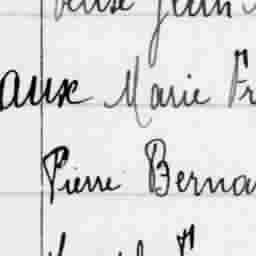 Jean
aux Marie Fr
Pierre Berna